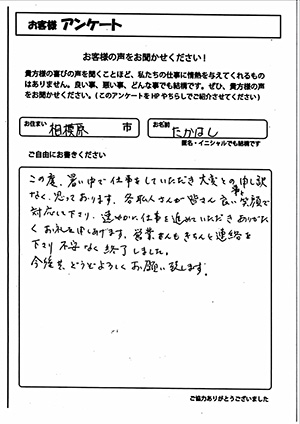 お客様 アンケート
お客様の声をお聞かせください！
貴方様の喜びの声を聞くことほど、私たちの仕事に情熱を与えてくれるもの
はありません。良い事、悪い事、どんな事でも結構です。ぜひ、貴方様の声
をお聞かせください。(このアンケートをHPやちらしでご紹介させてください)
お住まい 相模原 市
お名前 たかはし
匿名・イニシャルでも結構です
ご自由にお書きください
この度、暑い中で仕事をしていただき大変と申し訳
なく思っております。各職人さんが皆さん良い笑顔で
対応して下り、速やかに仕事を進めていただきありがた
くお礼を申しあげます。営業さんもきちんと連絡を
下り不安なく終了しました。
今後共、どうぞよろしくお願い致します。
ご協力ありがとうございました